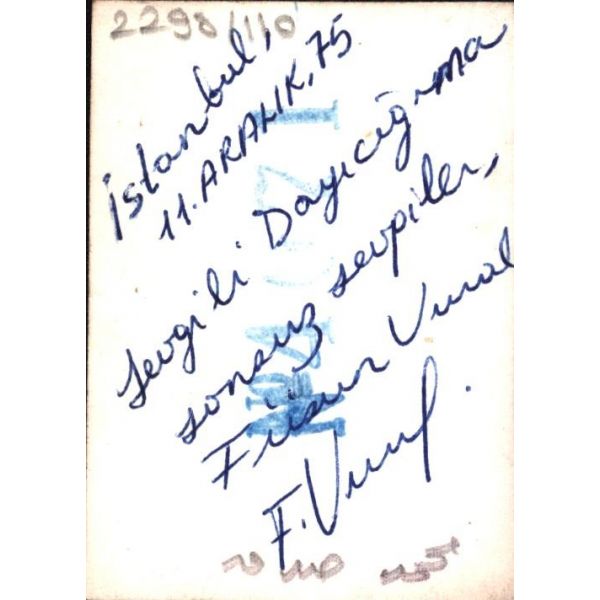 2298/110
İstanbul,
11.ARALIK,75
Sevgili Dayıcığıma
sonsuz sevgiler,
Füsun Vural
F.Vural